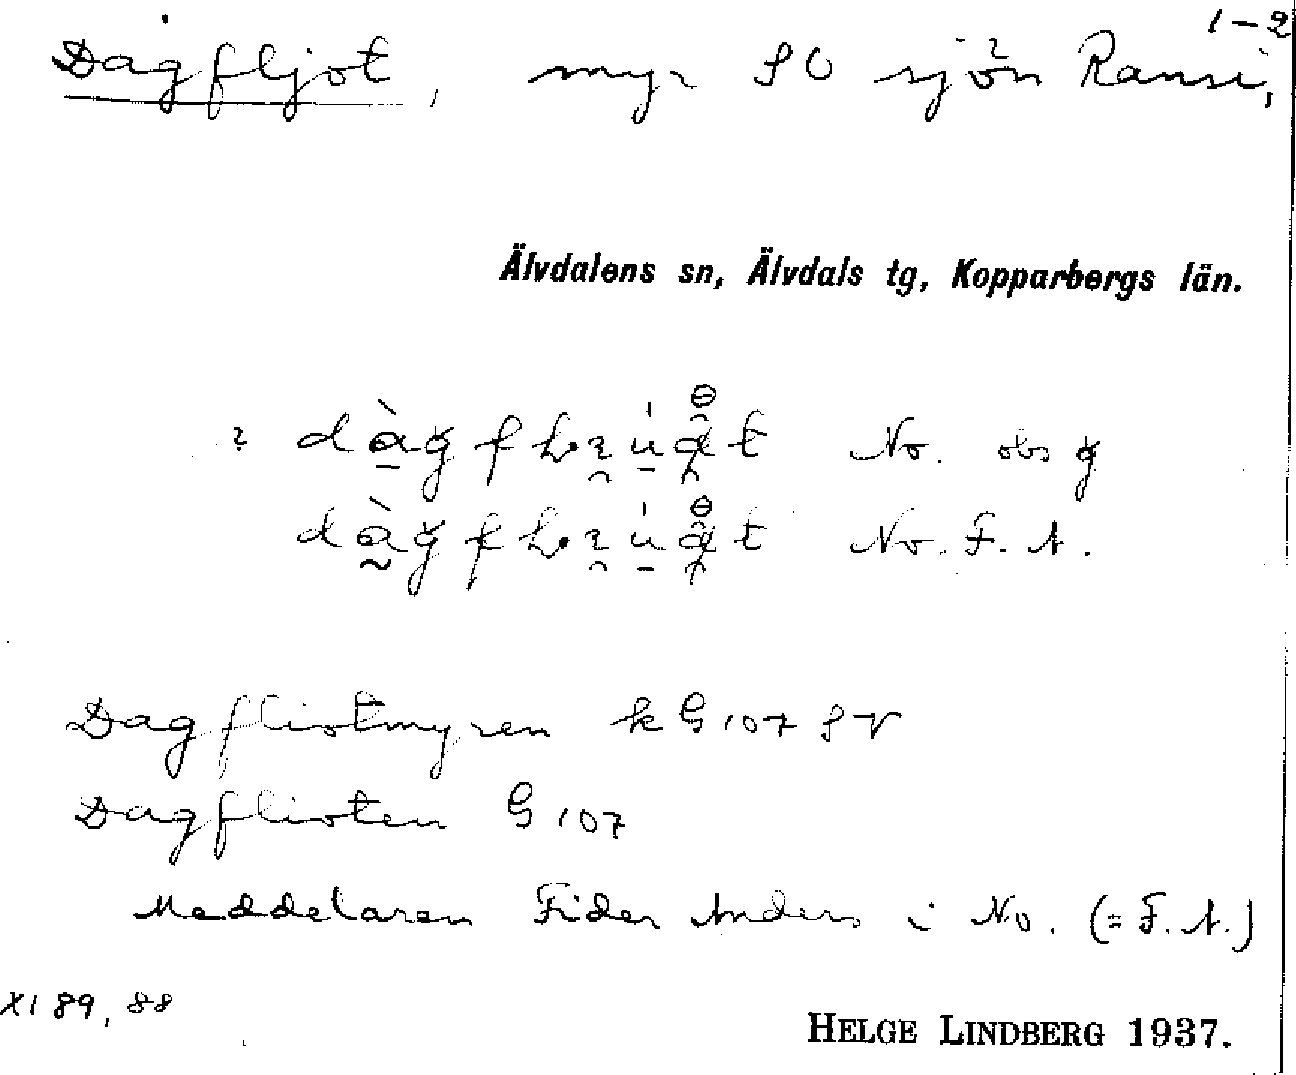 1-2
Dagfljot, myr SO sjön Ransi,
Älvdalens sn, Älvdals tg, Kopparbergs län.
No. obs g
No. F. A.
Dagfliotmyren k G 107 SV
Dagflioten G 107
Meddelaren Fider Anders i No. (= F. A.)
XI 89, 88
HELGE LINDBERG 1937.